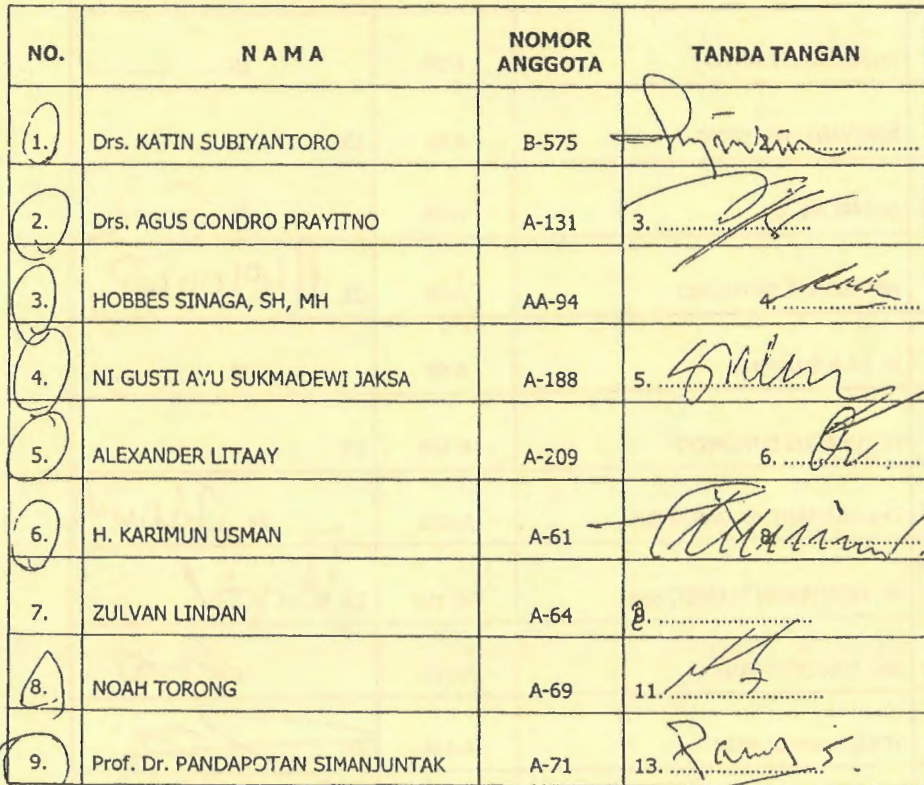 NO. N A M A NOMOR ANGGOTA TANDA TANGAN
1. Drs. KATIN SUBIYANTORO B-575 2.
2. Drs. AGUS CONDRO PRAYITNO A-131 3.
3. HOBBES SINAGA, SH, MH AA-94 4.
4. NI GUSTI AYU SUKMADEWI JAKSA A-188 5.
5. ALEXANDER LITAAY A-209 6.
6. H. KARIMUN USMAN A-61 8.
7. ZULVAN LINDAN A-64
8. NOAH TORONG A-69 11.
9. Prof. Dr. PANDAPOTAN SIMANJUNTAK A-71 13.